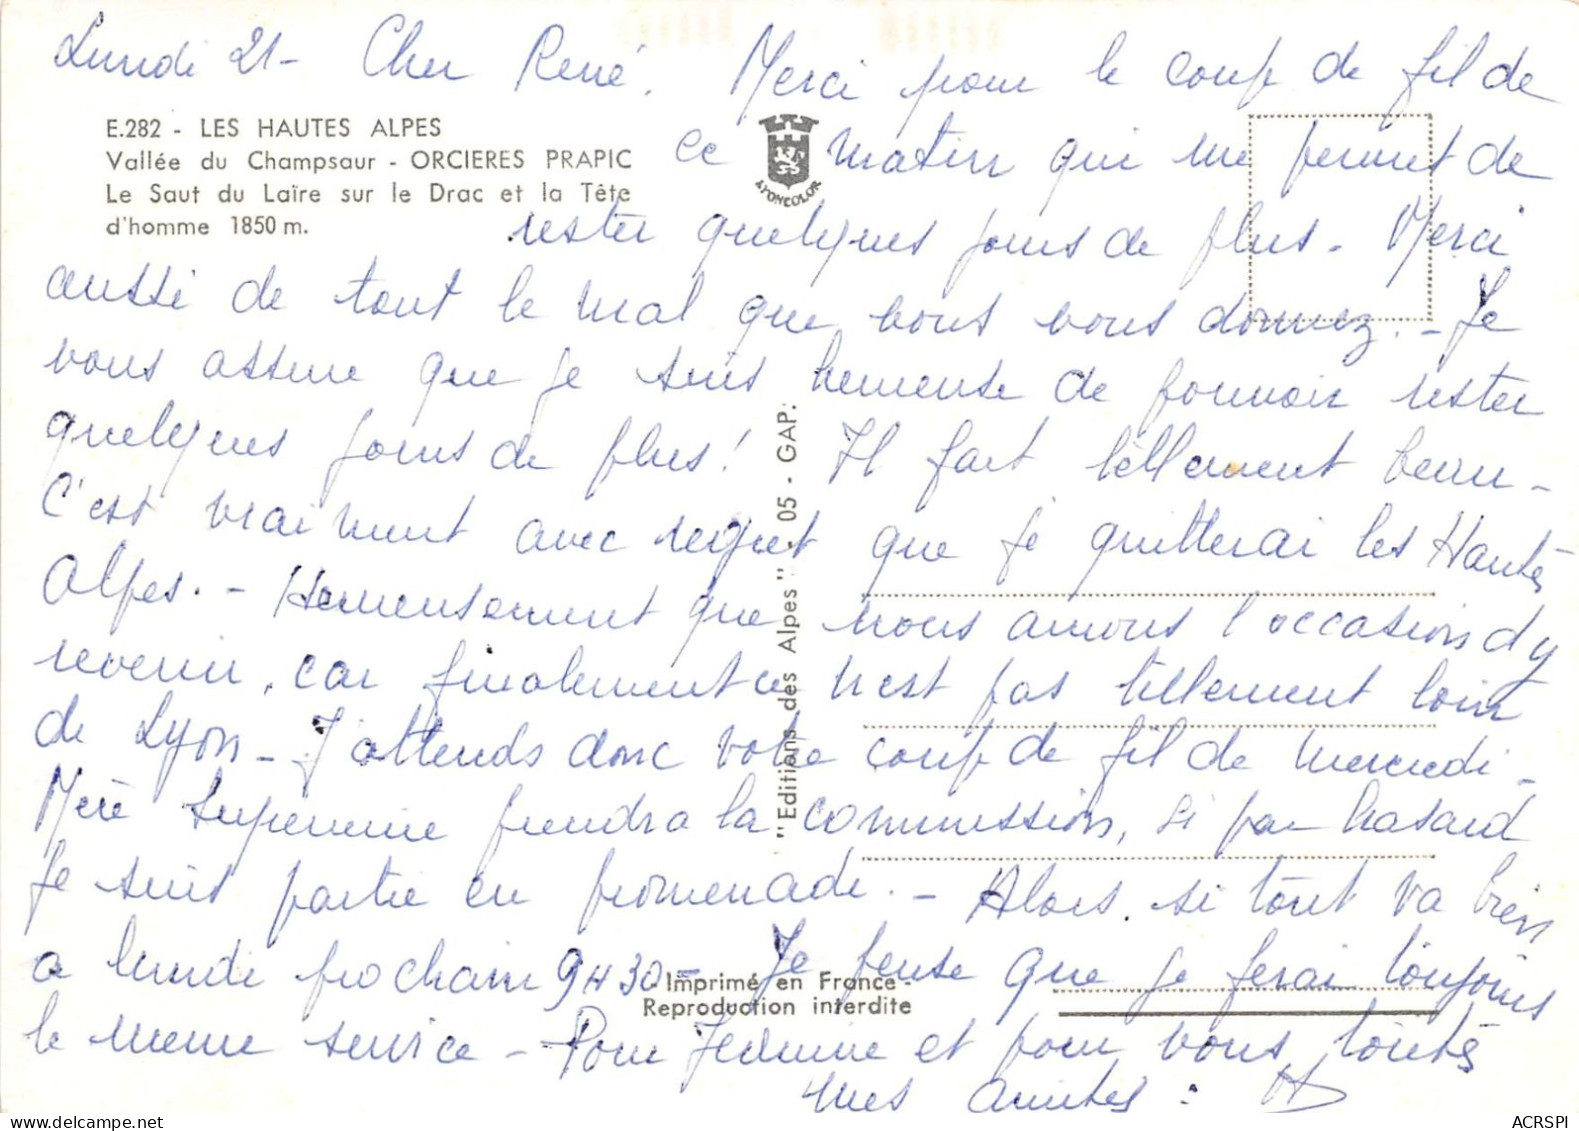 Lundi 21 - Cher René. Merci pour le coup de fil de
E.282 - LES HAUTES ALPES
Vallée du Champsaur - ORCIERES PRAPIC
Le Saut du Laïre sur le Drac et la Tête
d'homme 1850 m.
LYONCOLOR
ce matin qui me permet de
rester quelques jours de plus - Merci
aussi de tout le mal que vous vous donnez. - Je
vous assure que je suis heureuse de pouvoir rester
quelques jours de plus ! Il fait tellement beau -
C'est vraiment avec regret que je quitterai les Hautes
Alpes. - Heureusement que nous aurons l'occasion d'y
revenir, car finalement ce n'est pas tellement loin
de Lyon - J'attends donc votre coup de fil de mercredi -
Mère Supérieure prendra la commission, si par hasard
Je suis partie en promenade. - Alors, si tout va bien
a lundi prochain 9H30 - Je pense que je ferai toujours
le même service - Pour et pour vous toutes
mes amitiés :
"Editions des Alpes" - 05 - GAP.
Imprimé en France -
Reproduction interdite
ACRSPI